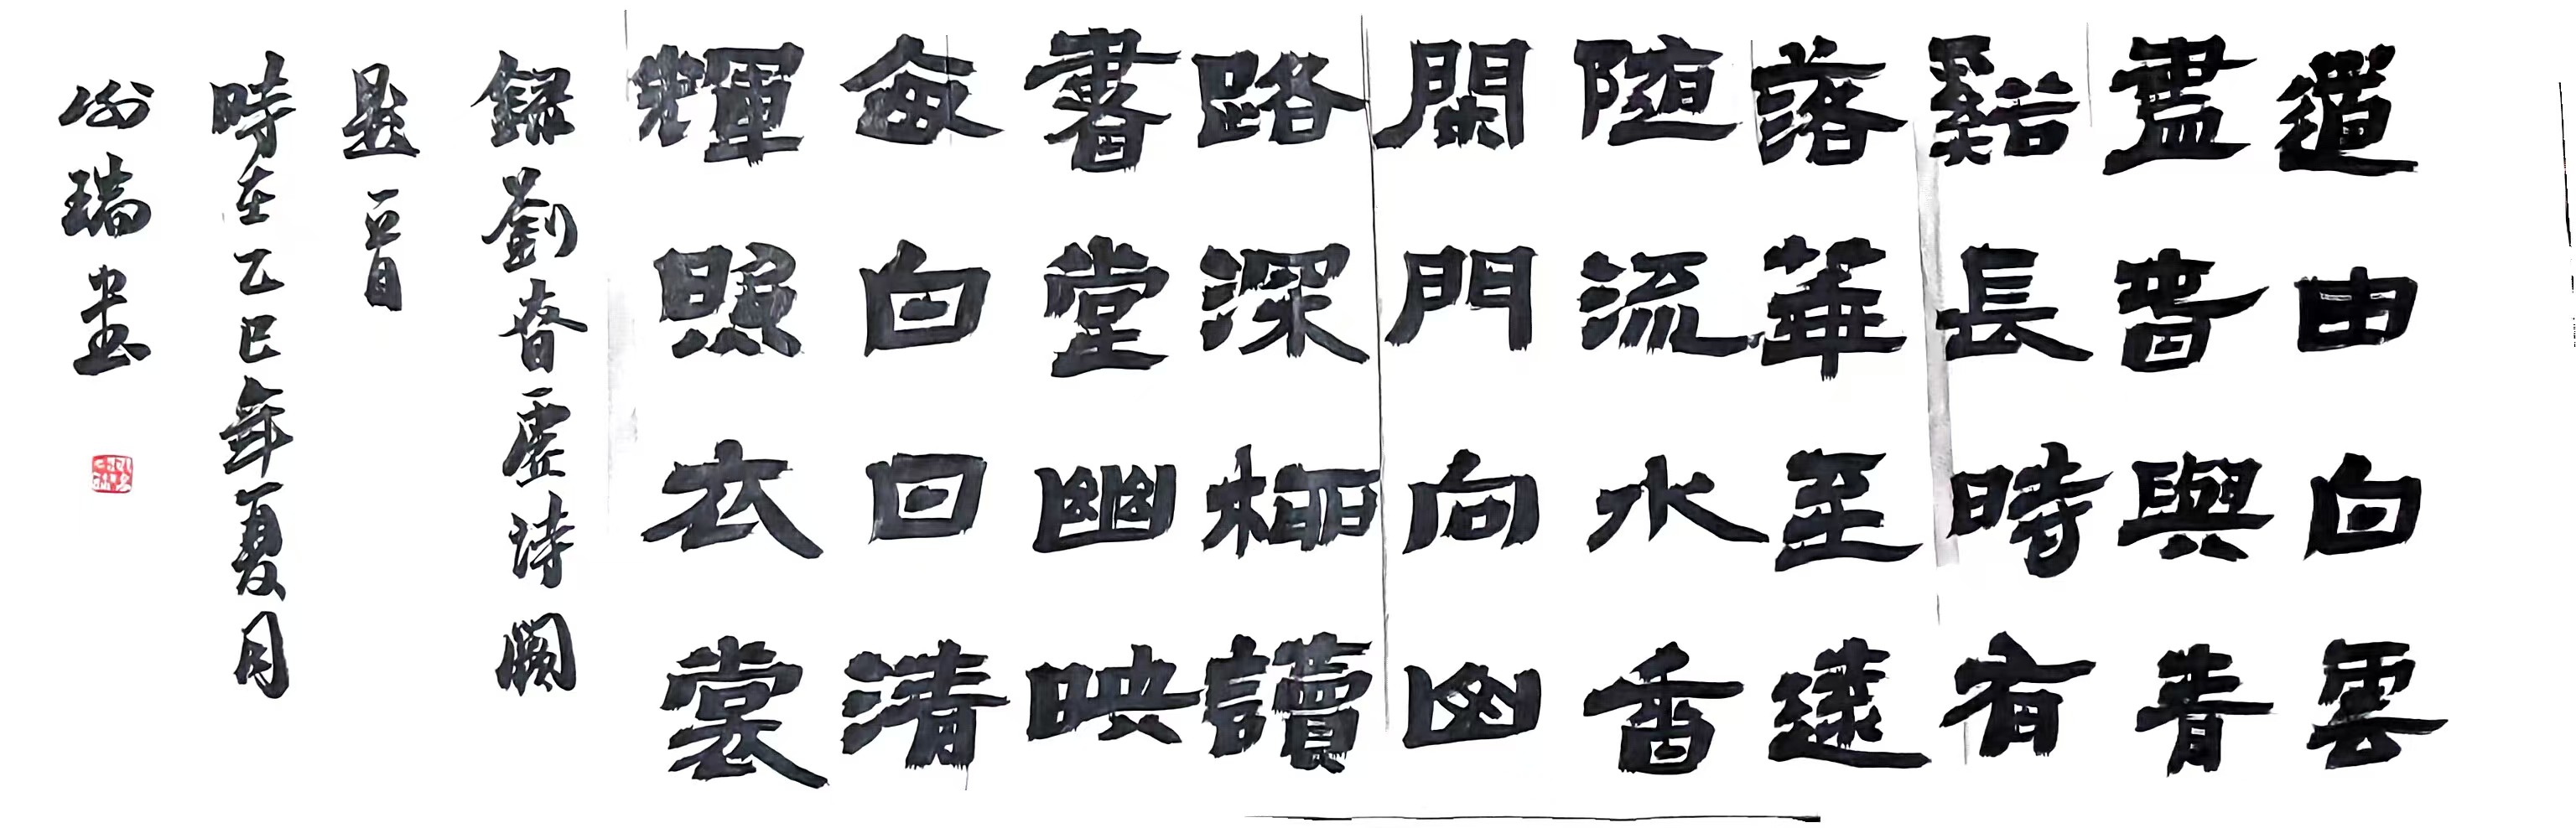 道由白雲
盡春與青
谿長時有
落華至遠
隨流水香
閑門向山
路深柳讀
書堂幽映
每白日清
輝照衣裳
錄劉眘虛詩闕
題一首
時在乙巳年夏月
瑞書